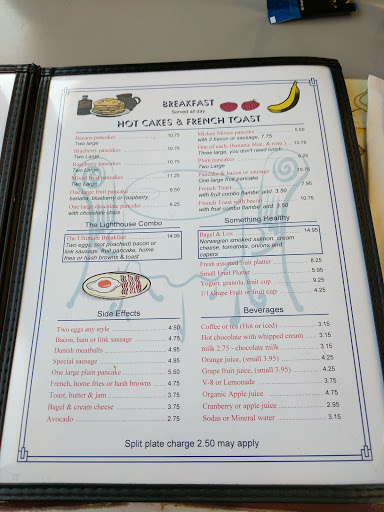 BREAKFAST
Served all day
HOT CAKES & FRENCH TOAST
Banana pancakes 10.75
Two large
Blueberry pancakes 10.75
Two Large
Raspberry pancakes 10.75
Two Large
Mixed fruit pancakes 11.25
Two Large
One large fruit pancake 6.50
banana, blueberry or raspberry
One large chocolate pancake 6.25
with chocolate chips
Mickey Mouse pancake 5.50
with 2 bacon or sausage, 7.75
One of each, (banana, blue, & rasp.) 13.75
Three large, you don't need lunch
Plain pancakes 9.25
Two Large
Pancake & bacon or sausage
One large fruit pancake
French Toast 7.95
with fruit combo flambe' add. 3.50
French Toast with bacon 10.75
with fruit combo flambe' add. 3.50
The Lighthouse Combo
The Ultimate Breakfast 14.95
Two eggs, (not poached) bacon or
link sausage, fruit pancake, home
fries or hash browns & toast
Something Healthy
Bagel & Lox 14.95
Norwegian smoked salmon, cream
cheese, tomatoes, onions and
capers
Fresh assorted fruit platter 8.25
Small Fruit Platter 5.95
Yogurt, granola, fruit cup 9.25
1/2 Grape Fruit or fruit cup 4.25
Side Effects
Two eggs any style 4.50
Bacon, ham or link sausage 4.75
Danish meatballs 4.95
Special sausage 4.95
One large plain pancake 5.50
French, home fries or hash browns 4.75
Toast, butter & jam 3.75
Bagel & cream cheese 3.75
Avocado 2.75
Beverages
Coffee or tea (Hot or iced) 3.15
Hot chocolate with whipped cream 3.15
milk 2.75 - chocolate milk 3.15
Orange juice, (small 3.95) 4.25
Grape fruit juice, (small 3.95) 4.25
V-8 or Lemonade 3.75
Organic Apple juice 4.75
Cranberry or apple juice 2.95
Sodas or Mineral water 3.15
Split plate charge 2.50 may apply